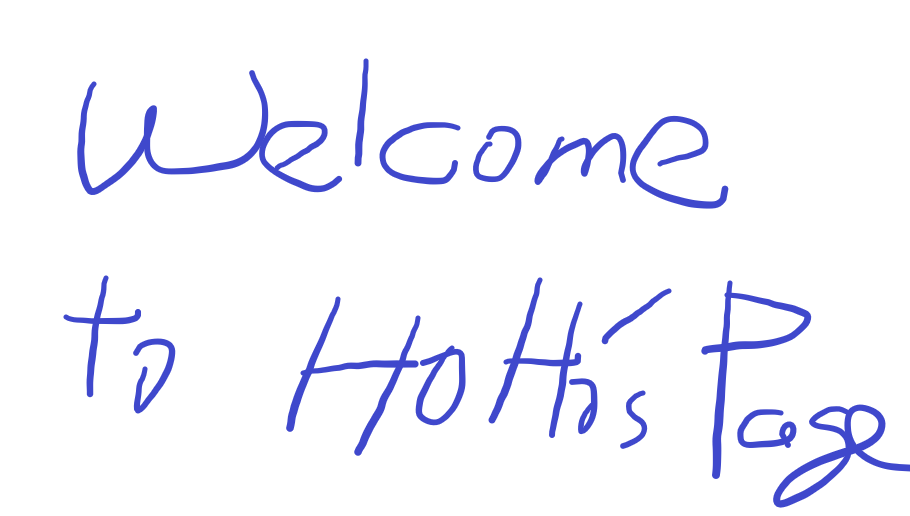 Welcome
to HoHa's Page